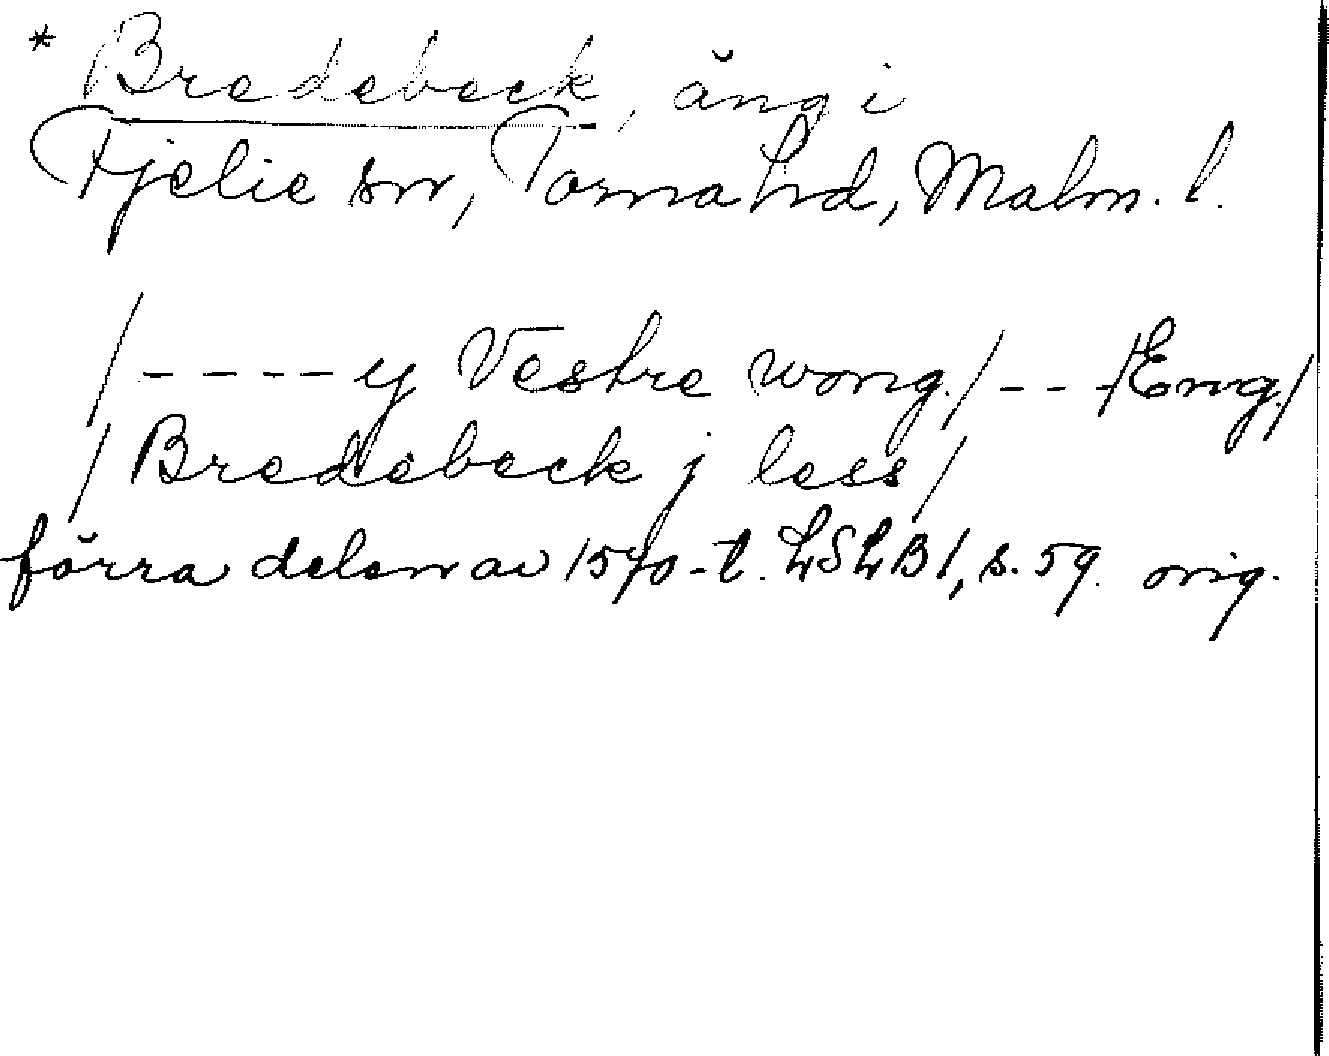 * Bredebeck, äng i
Fjelie sn, Torna hd, Malm. l.
/----y Vestre wong./---/Eng./
/Bredebeck j less/
förra delen av 1570-t. LSLB1, s. 59. orig.